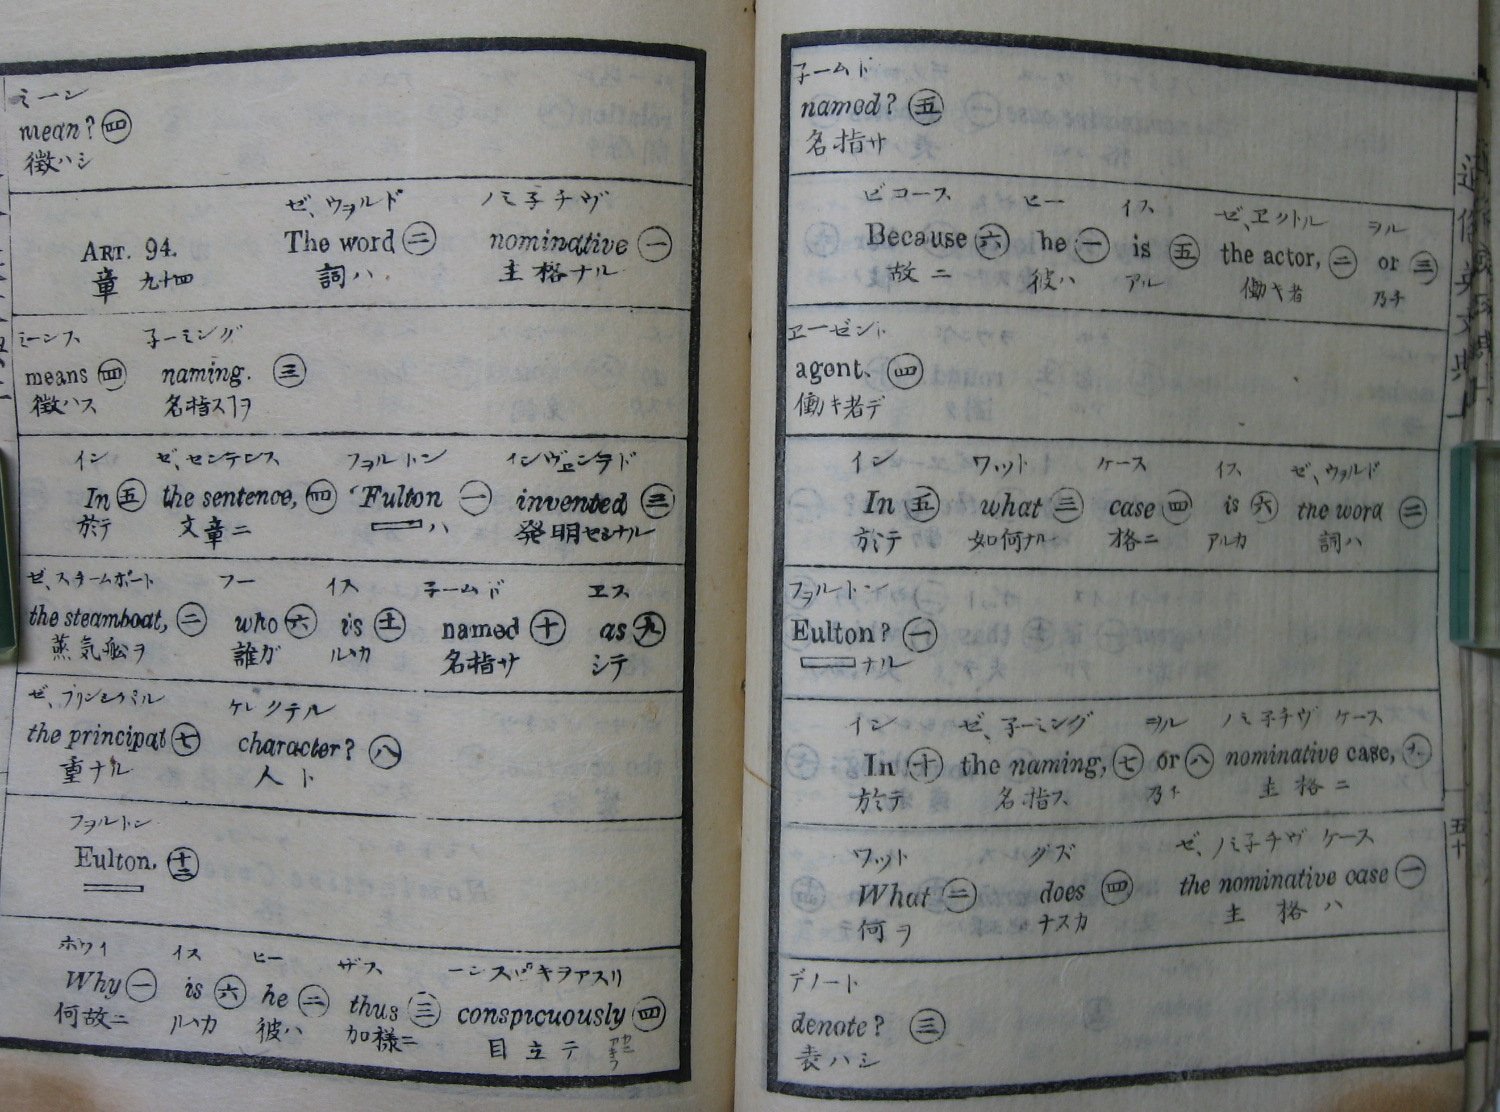 ミーン
mean? ㊃
徴ハシ
ゼ、ウヲルド ノミ子チヴ
ART. 94. The word ㊁ nominative ㊀
章 九十四 詞ハ 主格ナル
ミーンス 子ーミング
means ㊃ naming. ㊂
徴ハス 名指スヿヲ
イン ゼ、センテンス フヲルトン インヴェンテド
In ㊄ the sentence, ㊃ Fulton ㊀ invented ㊂
於テ 文章ニ ハ 発明セシナル
ゼ、スチームボート フー イス 子ームド エス
the steamboat, ㊁ who ㊅ is ⑪ named ㊉ as ㊈
蒸気舩ヲ 誰ガ ルカ 名指サ シテ
ゼ、プリンシパル ケレクテル
the principal ㊆ character? ㊇
重ナル 人ト
フヲルトン
Eulton. ⑫
ホワイ イス ヒー ザス
Why ㊀ is ㊅ he ㊁ thus ㊂ conspicuously ㊃
何故ニ ルカ 彼ハ 加様ニ 目立テ
子ームド
named? ㊄
名指サ
ビコース ヒー イス ゼ、エクトル ヲル
Because ㊅ he ㊀ is ㊄ the actor, ㊁ or ㊂
故ニ 彼ハ アル 働キ者 乃チ
エーゼント
agent. ㊃
働キ者デ
イン ワット ケース イス ゼ、ウヲルド
In ㊄ what ㊂ case ㊃ is ㊅ the word ㊁
於テ 如何ナル 格ニ アルカ 詞ハ
フヲルトン
Eulton? ㊀
ナル
イン ゼ、子ーミング ヲル ノミ子チヴ ケース
In ㊉ the naming, ㊆ or ㊇ nominative case, ㊈
於テ 名指ス 乃チ 主格ニ
ワット ダズ ゼ、ノミ子チヴ ケース
What ㊁ does ㊃ the nominative case ㊀
何ヲ ナスカ 主格ハ
デノート
denote? ㊂
表ハシ
五十